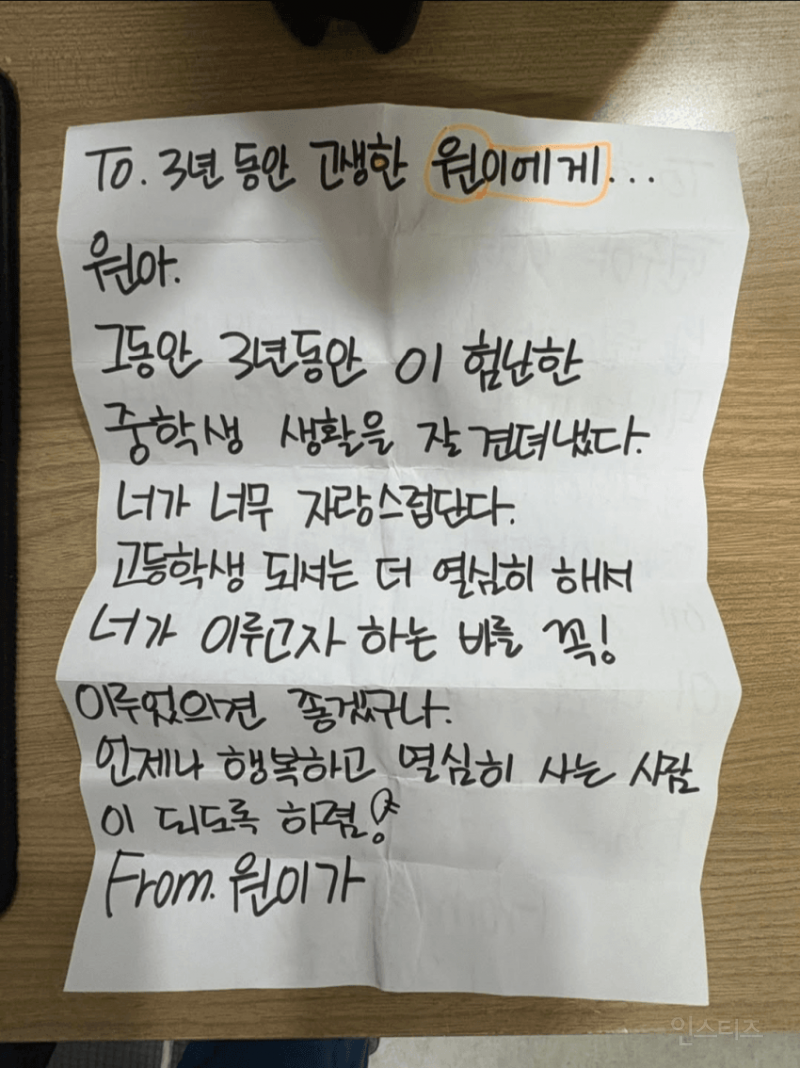 To. 3년 동안 고생한 원이에게...
원아.
그동안 3년동안 이 험난한
중학생 생활을 잘 견뎌냈다.
너가 너무 자랑스럽단다.
고등학생 되서는 더 열심히 해서
너가 이루고자 하는 바를 꼭!
이루었으면 좋겠구나.
언제나 행복하고 열심히 사는 사람
이 되도록 하렴!
From. 원이가
인스티즈